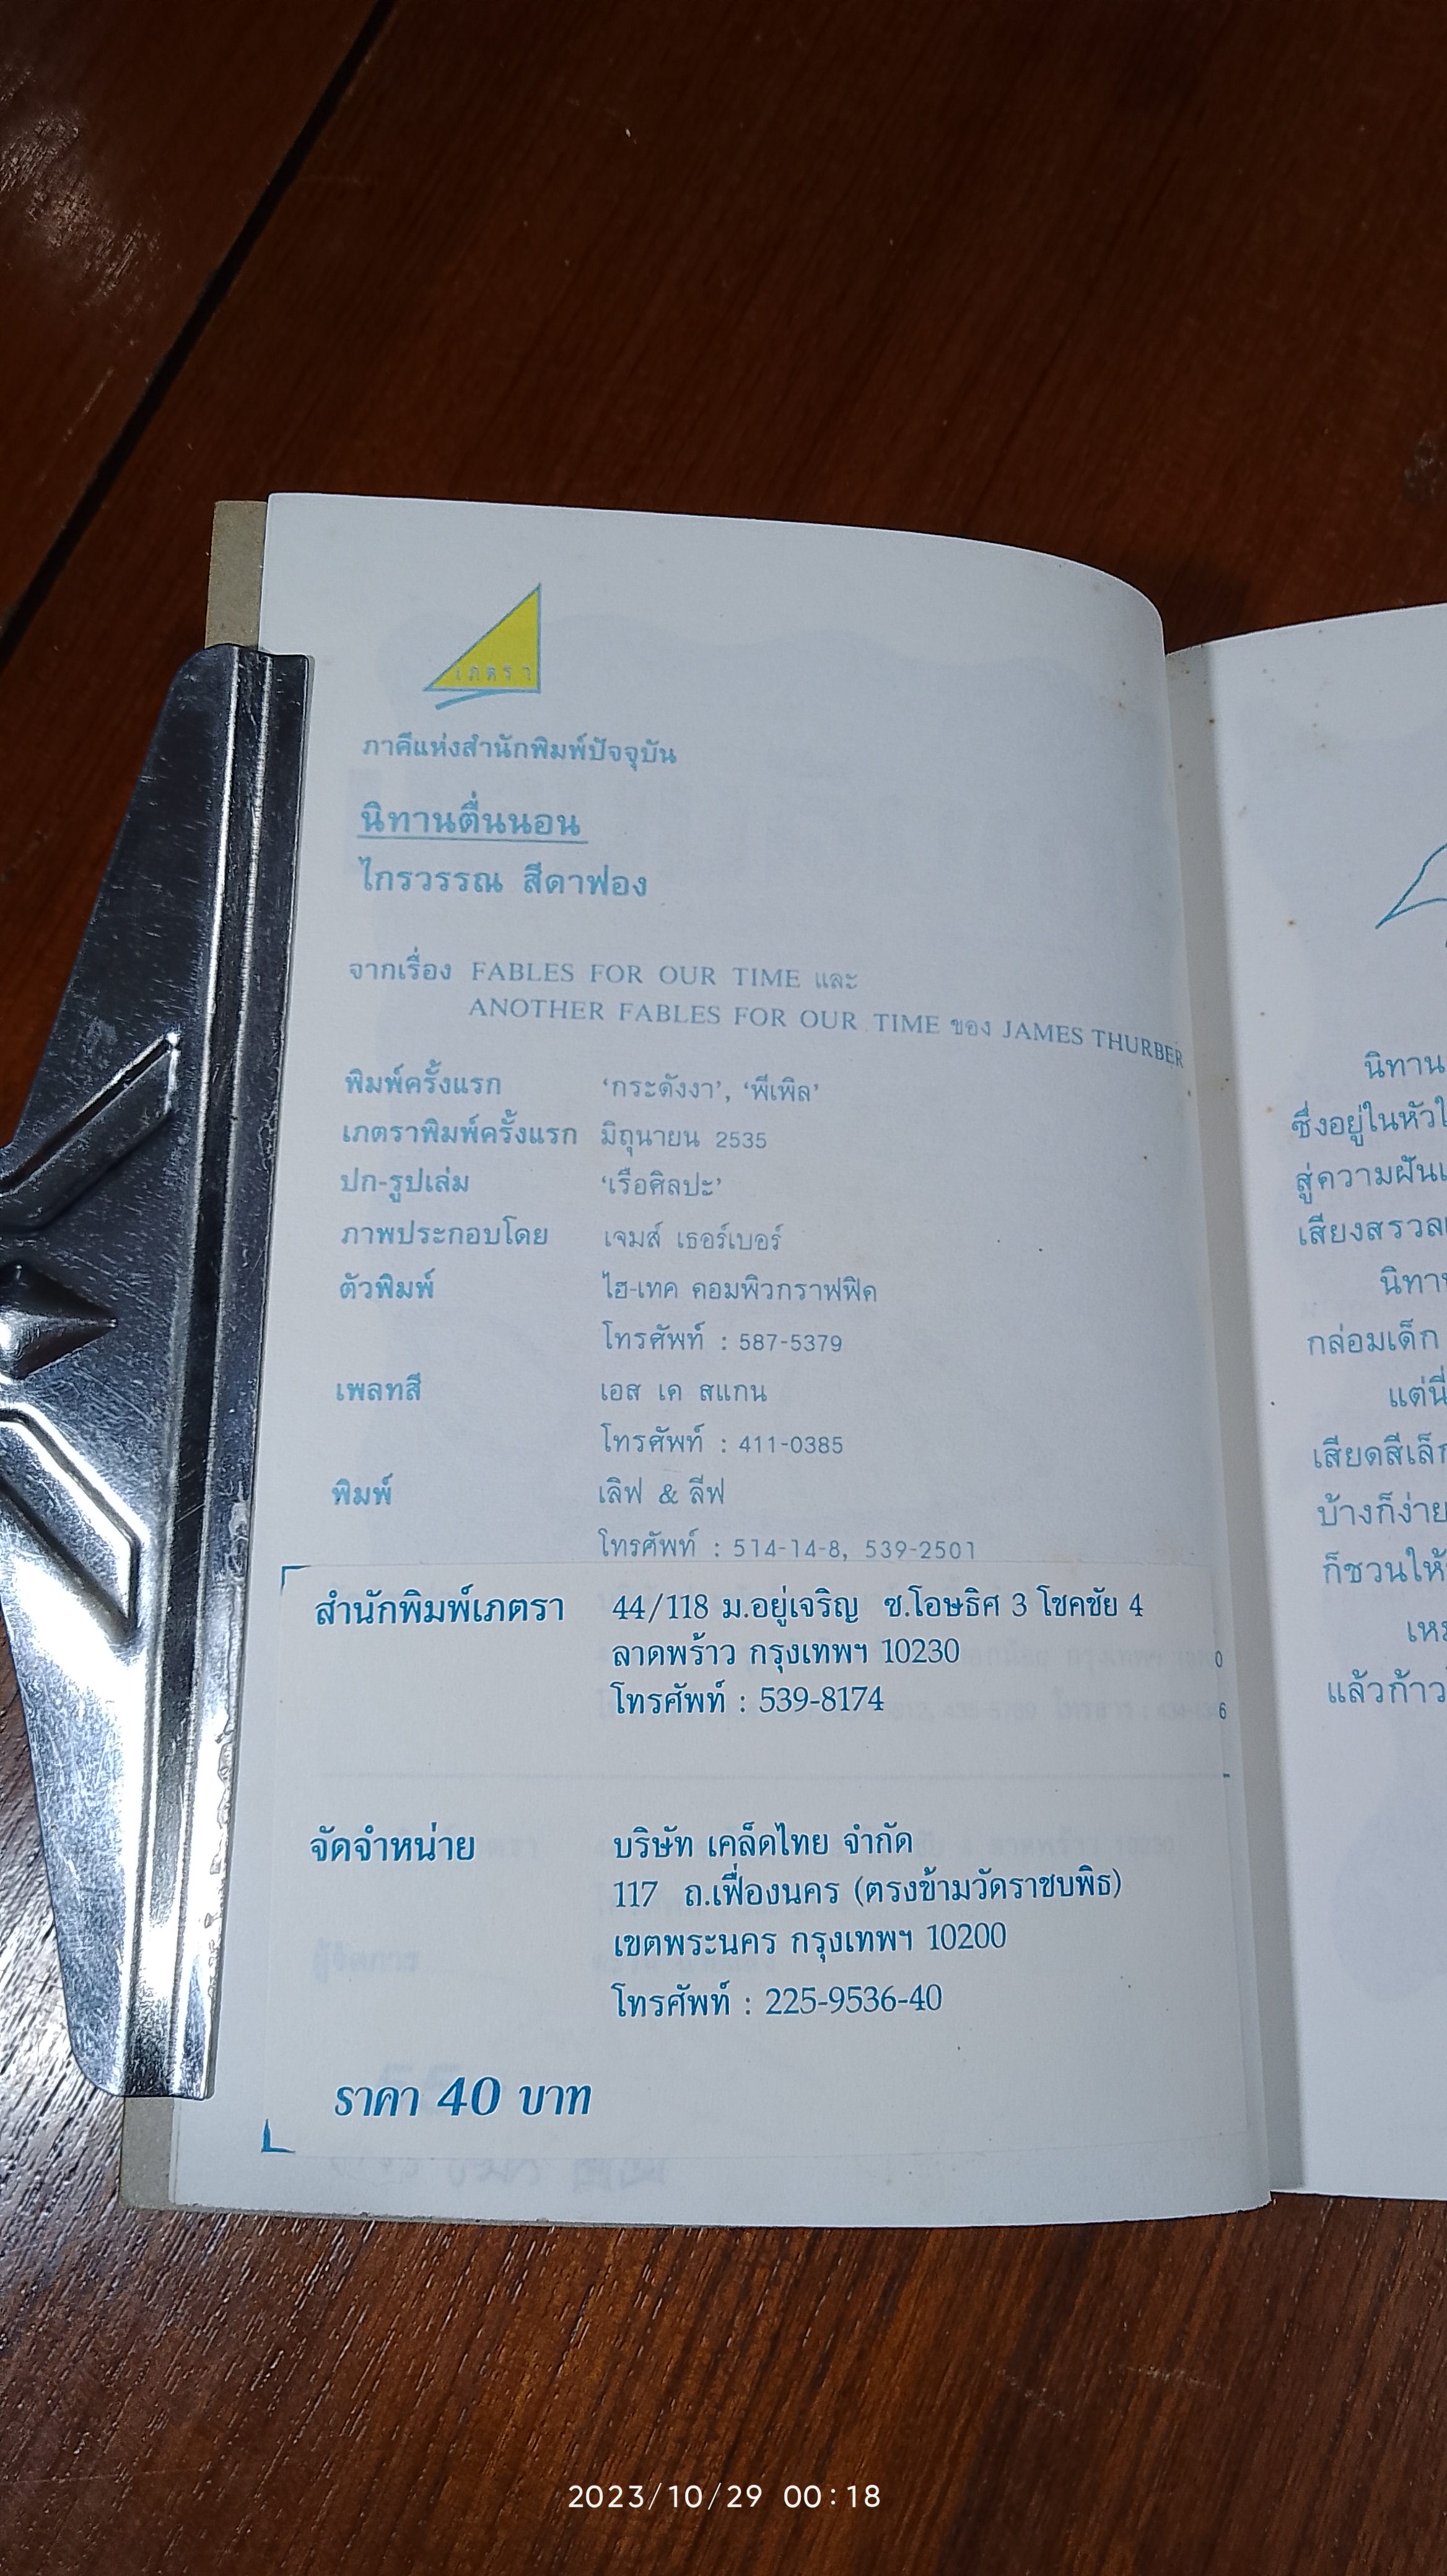 เภตรา
ภาคีแห่งสำนักพิมพ์ปัจจุบัน
นิทานตื่นนอน
ไกรวรรณ สีดาฟอง
จากเรื่อง FABLES FOR OUR TIME และ
ANOTHER FABLES FOR OUR TIME ของ JAMES THURBER
พิมพ์ครั้งแรก ‘กระดังงา’, ‘พีเพิล’
เภตราพิมพ์ครั้งแรก มิถุนายน 2535
ปก-รูปเล่ม ‘เรือศิลปะ’
ภาพประกอบโดย เจมส์ เธอร์เบอร์
ตัวพิมพ์ ไฮ-เทค คอมพิวกราฟฟิค
โทรศัพท์ : 587-5379
เพลทสี เอส เค สแกน
โทรศัพท์ : 411-0385
พิมพ์ เลิฟ & ลีฟ
โทรศัพท์ : 514-14-8, 539-2501
สำนักพิมพ์เภตรา 44/118 ม.อยู่เจริญ ซ.โอษธิศ 3 โชคชัย 4
ลาดพร้าว กรุงเทพฯ 10230
0
โทรศัพท์ : 539-8174
6
จัดจำหน่าย บริษัท เคล็ดไทย จำกัด
117 ถ.เฟื่องนคร (ตรงข้ามวัดราชบพิธ)
เขตพระนคร กรุงเทพฯ 10200
โทรศัพท์ : 225-9536-40
ราคา 40 บาท
นิทาน
ซึ่งอยู่ในหัวใ
สู่ความฝันเ
เสียงสรวล
นิทา
กล่อมเด็ก
แต่นี่
เสียดสีเล็ก
บ้างก็ง่าย
ก็ชวนให้
เหม
แล้วก้าว
2023/10/29 00:18